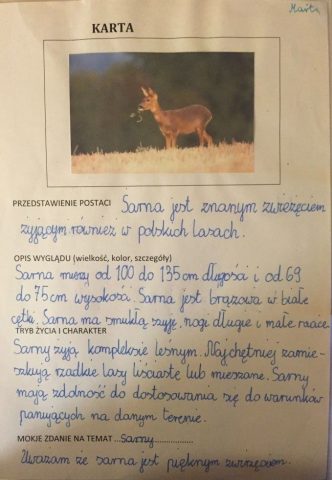 Marta
KARTA
PRZEDSTAWIENIE POSTACI Sarna jest znanym zwierzęciem
żyjącym również w polskich lasach.
OPIS WYGLĄDU (wielkość, kolor, szczegóły)
Sarna mierzy od 100 do 135 cm długości i od 69
do 75 cm wysokości. Sarna jest brązowa w białe
cętki. Sarna ma smukłą szyję, nogi długie i małe racice.
TRYB ŻYCIA I CHARAKTER
Sarny żyją kompleksie leśnym. Najchętniej zamie-
szkują rzadkie lasy liściaste lub mieszane. Sarny
mają zdolność do dostosowania się do warunków
panujących na danym terenie.
MOKJE ZDANIE NA TEMAT ...Sarny.................
Uważam że sarna jest pięknym zwierzęciem.